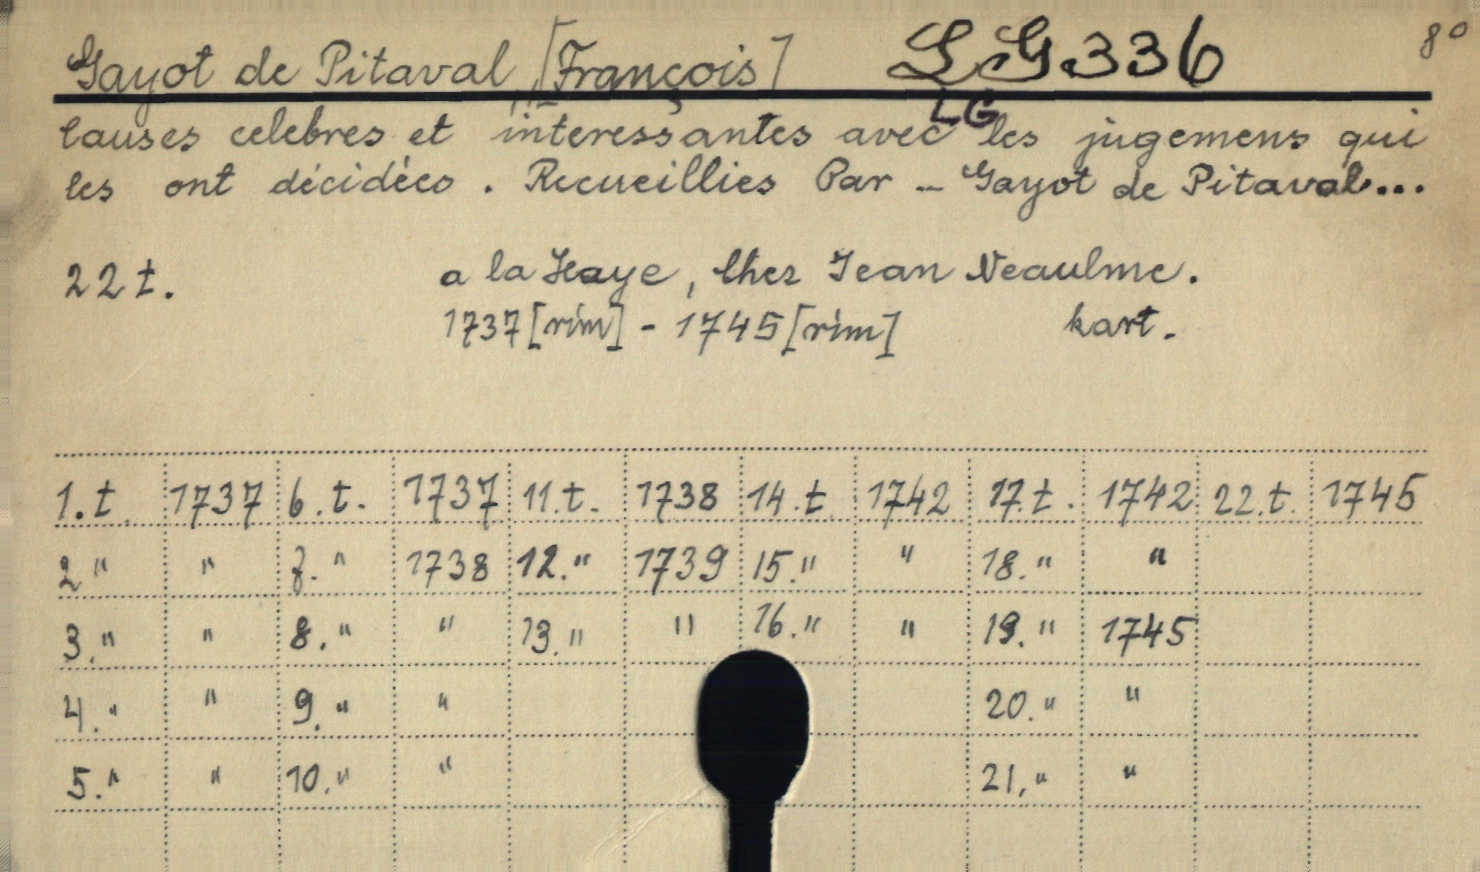 Gayot de Pitaval, [François] LG 336 8°
LG
Causes celebres et interessantes avec les jugemens qui
les ont décidées. Recueillies Par — Gayot de Pitaval...
22 t. a la Haye, Chez Jean Neaulme.
1737 [rím] - 1745 [rím] kart.
1. t. 1737 6. t. 1737 11. t. 1738 14. t. 1742 17. t. 1742 22. t. 1745
2 " " 7. " 1738 12. " 1739 15. " " 18. " "
3. " " 8. " " 13. " " 16. " " 19. " 1745
4. " " 9. " " 20. " "
5. " " 10. " " 21. " "